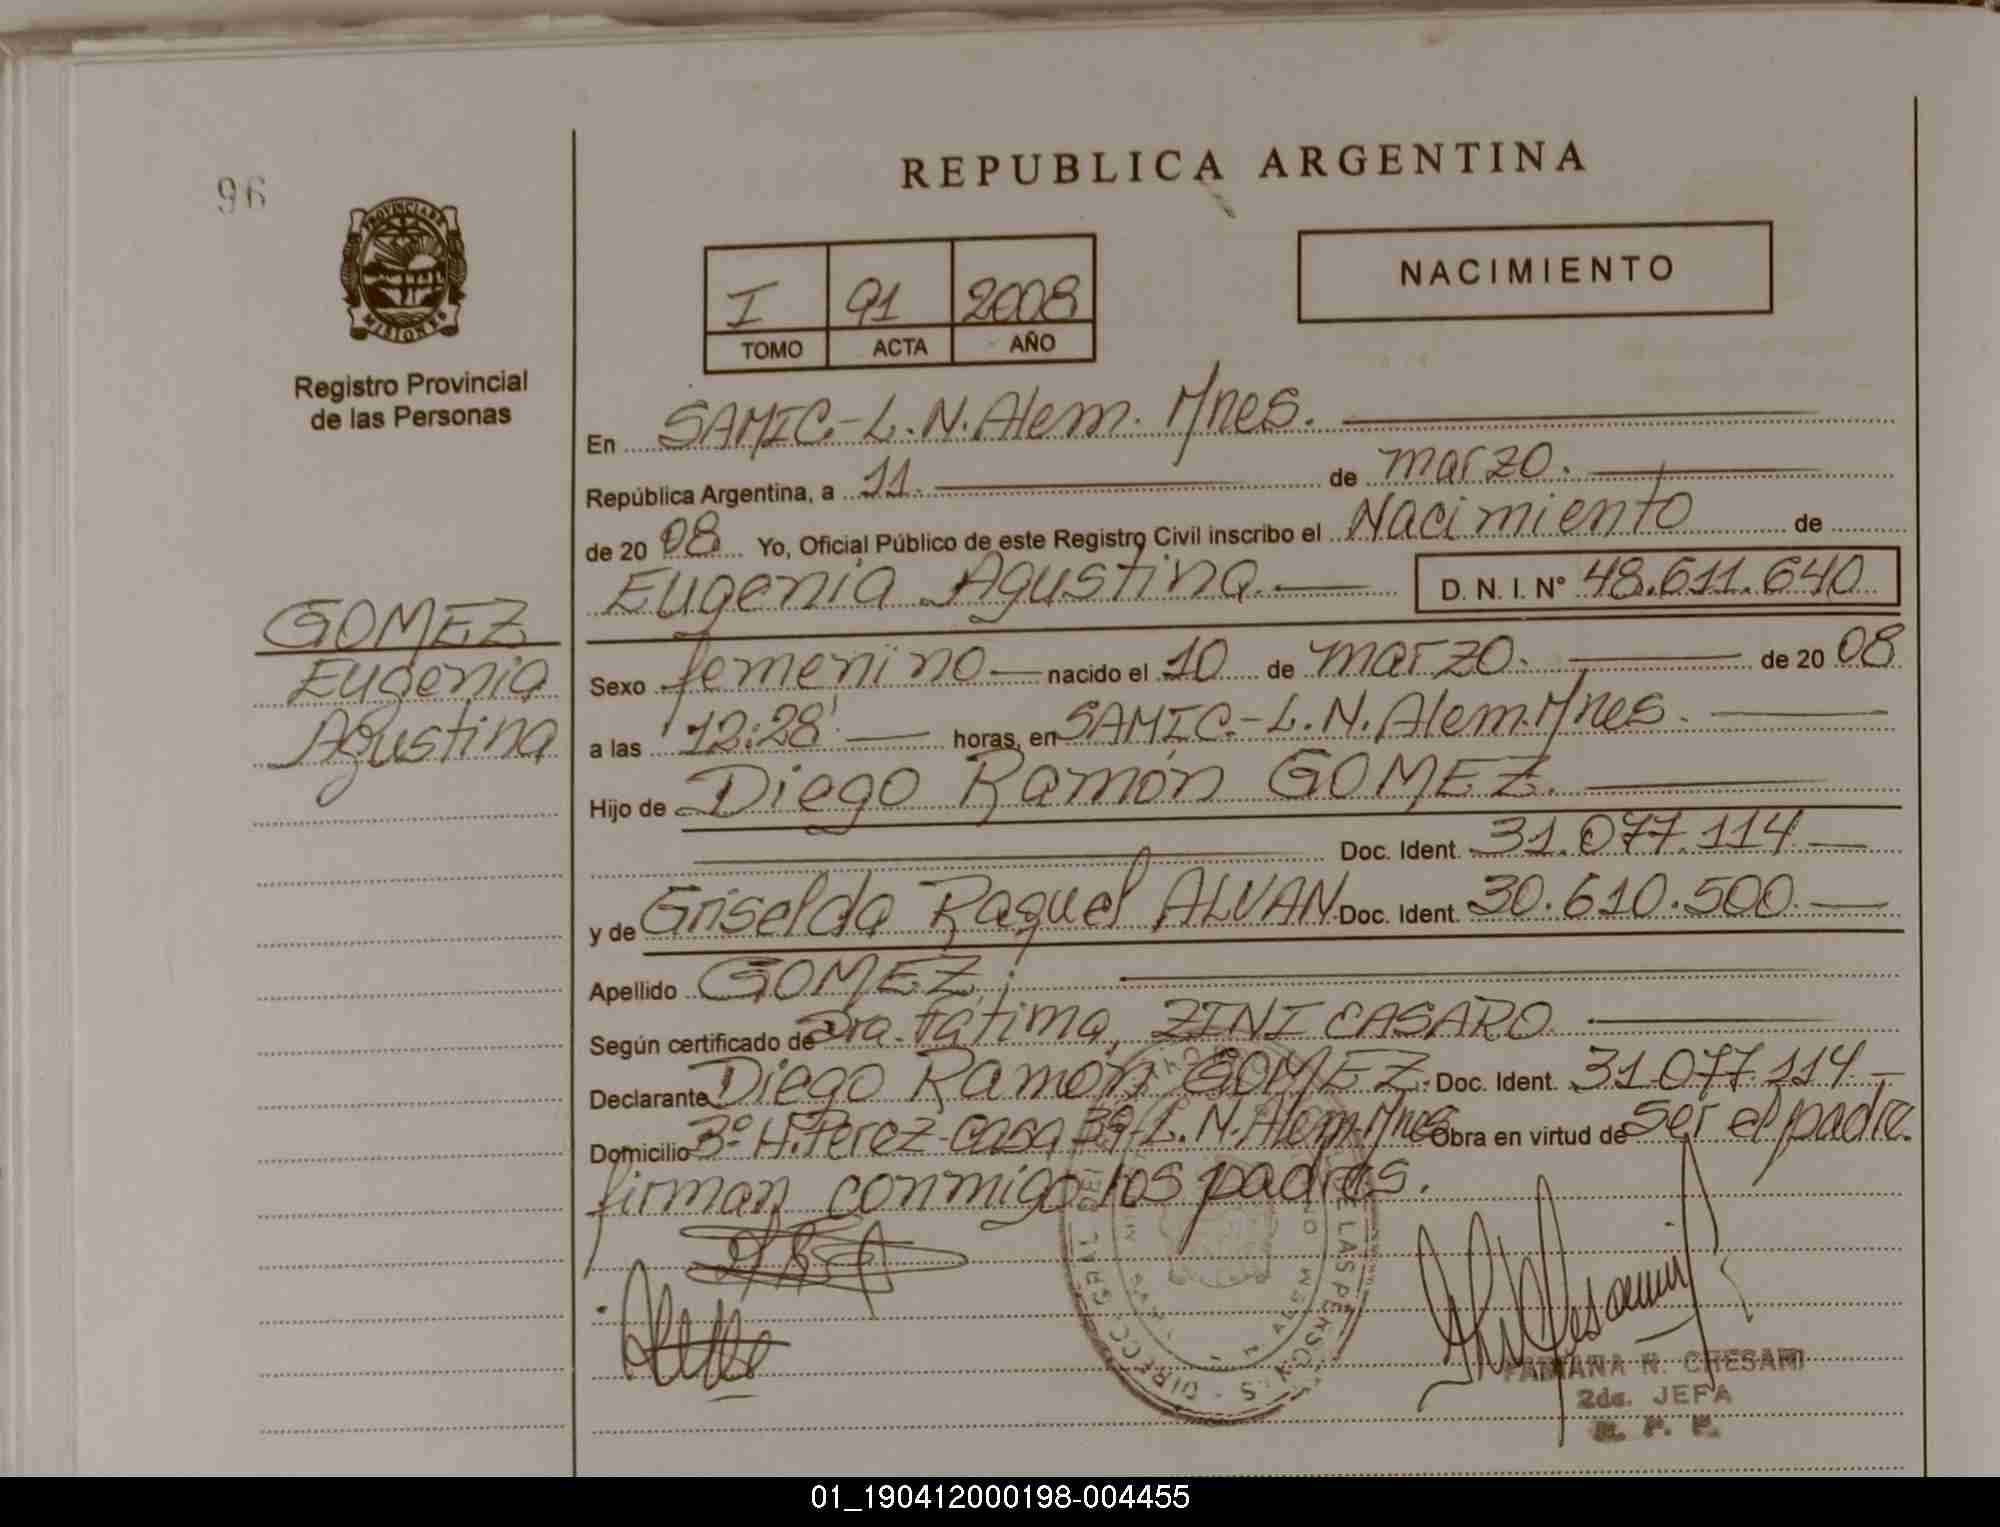 96
REPUBLICA ARGENTINA
PROVINCIA DE
MISIONES
Registro Provincial
de las Personas
I 91 2008
TOMO ACTA AÑO
NACIMIENTO
En SAMIC.-L.N.Alem. Mnes.
República Argentina, a 11. de marzo.
de 20 08 Yo, Oficial Público de este Registro Civil inscribo el Nacimiento de
Eugenia Agustina. D. N. I. Nº 48.611.640
GOMEZ
Eugenia
Agustina
Sexo femenino nacido el 10 de marzo. de 20 08
a las 12:28' horas, en SAMIC.-L.N.Alem.Mnes.
Hijo de Diego Ramón GOMEZ.
Doc. Ident. 31.077.114
y de Griselda Raquel ALVAN. Doc. Ident. 30.610.500.
Apellido GOMEZ.;
Según certificado de Dra. Fátima, ZINI CASARO
Declarante Diego Ramón GOMEZ. Doc. Ident. 31.077.114.
Domicilio 3º H.Perez-casa 39-L.N.Alem.Mnes Obra en virtud de ser el padre.
firman conmigo los padres.
DE LAS PERSONAS
FABIANA N. CHESANI
2da. JEFA
01_190412000198-004455